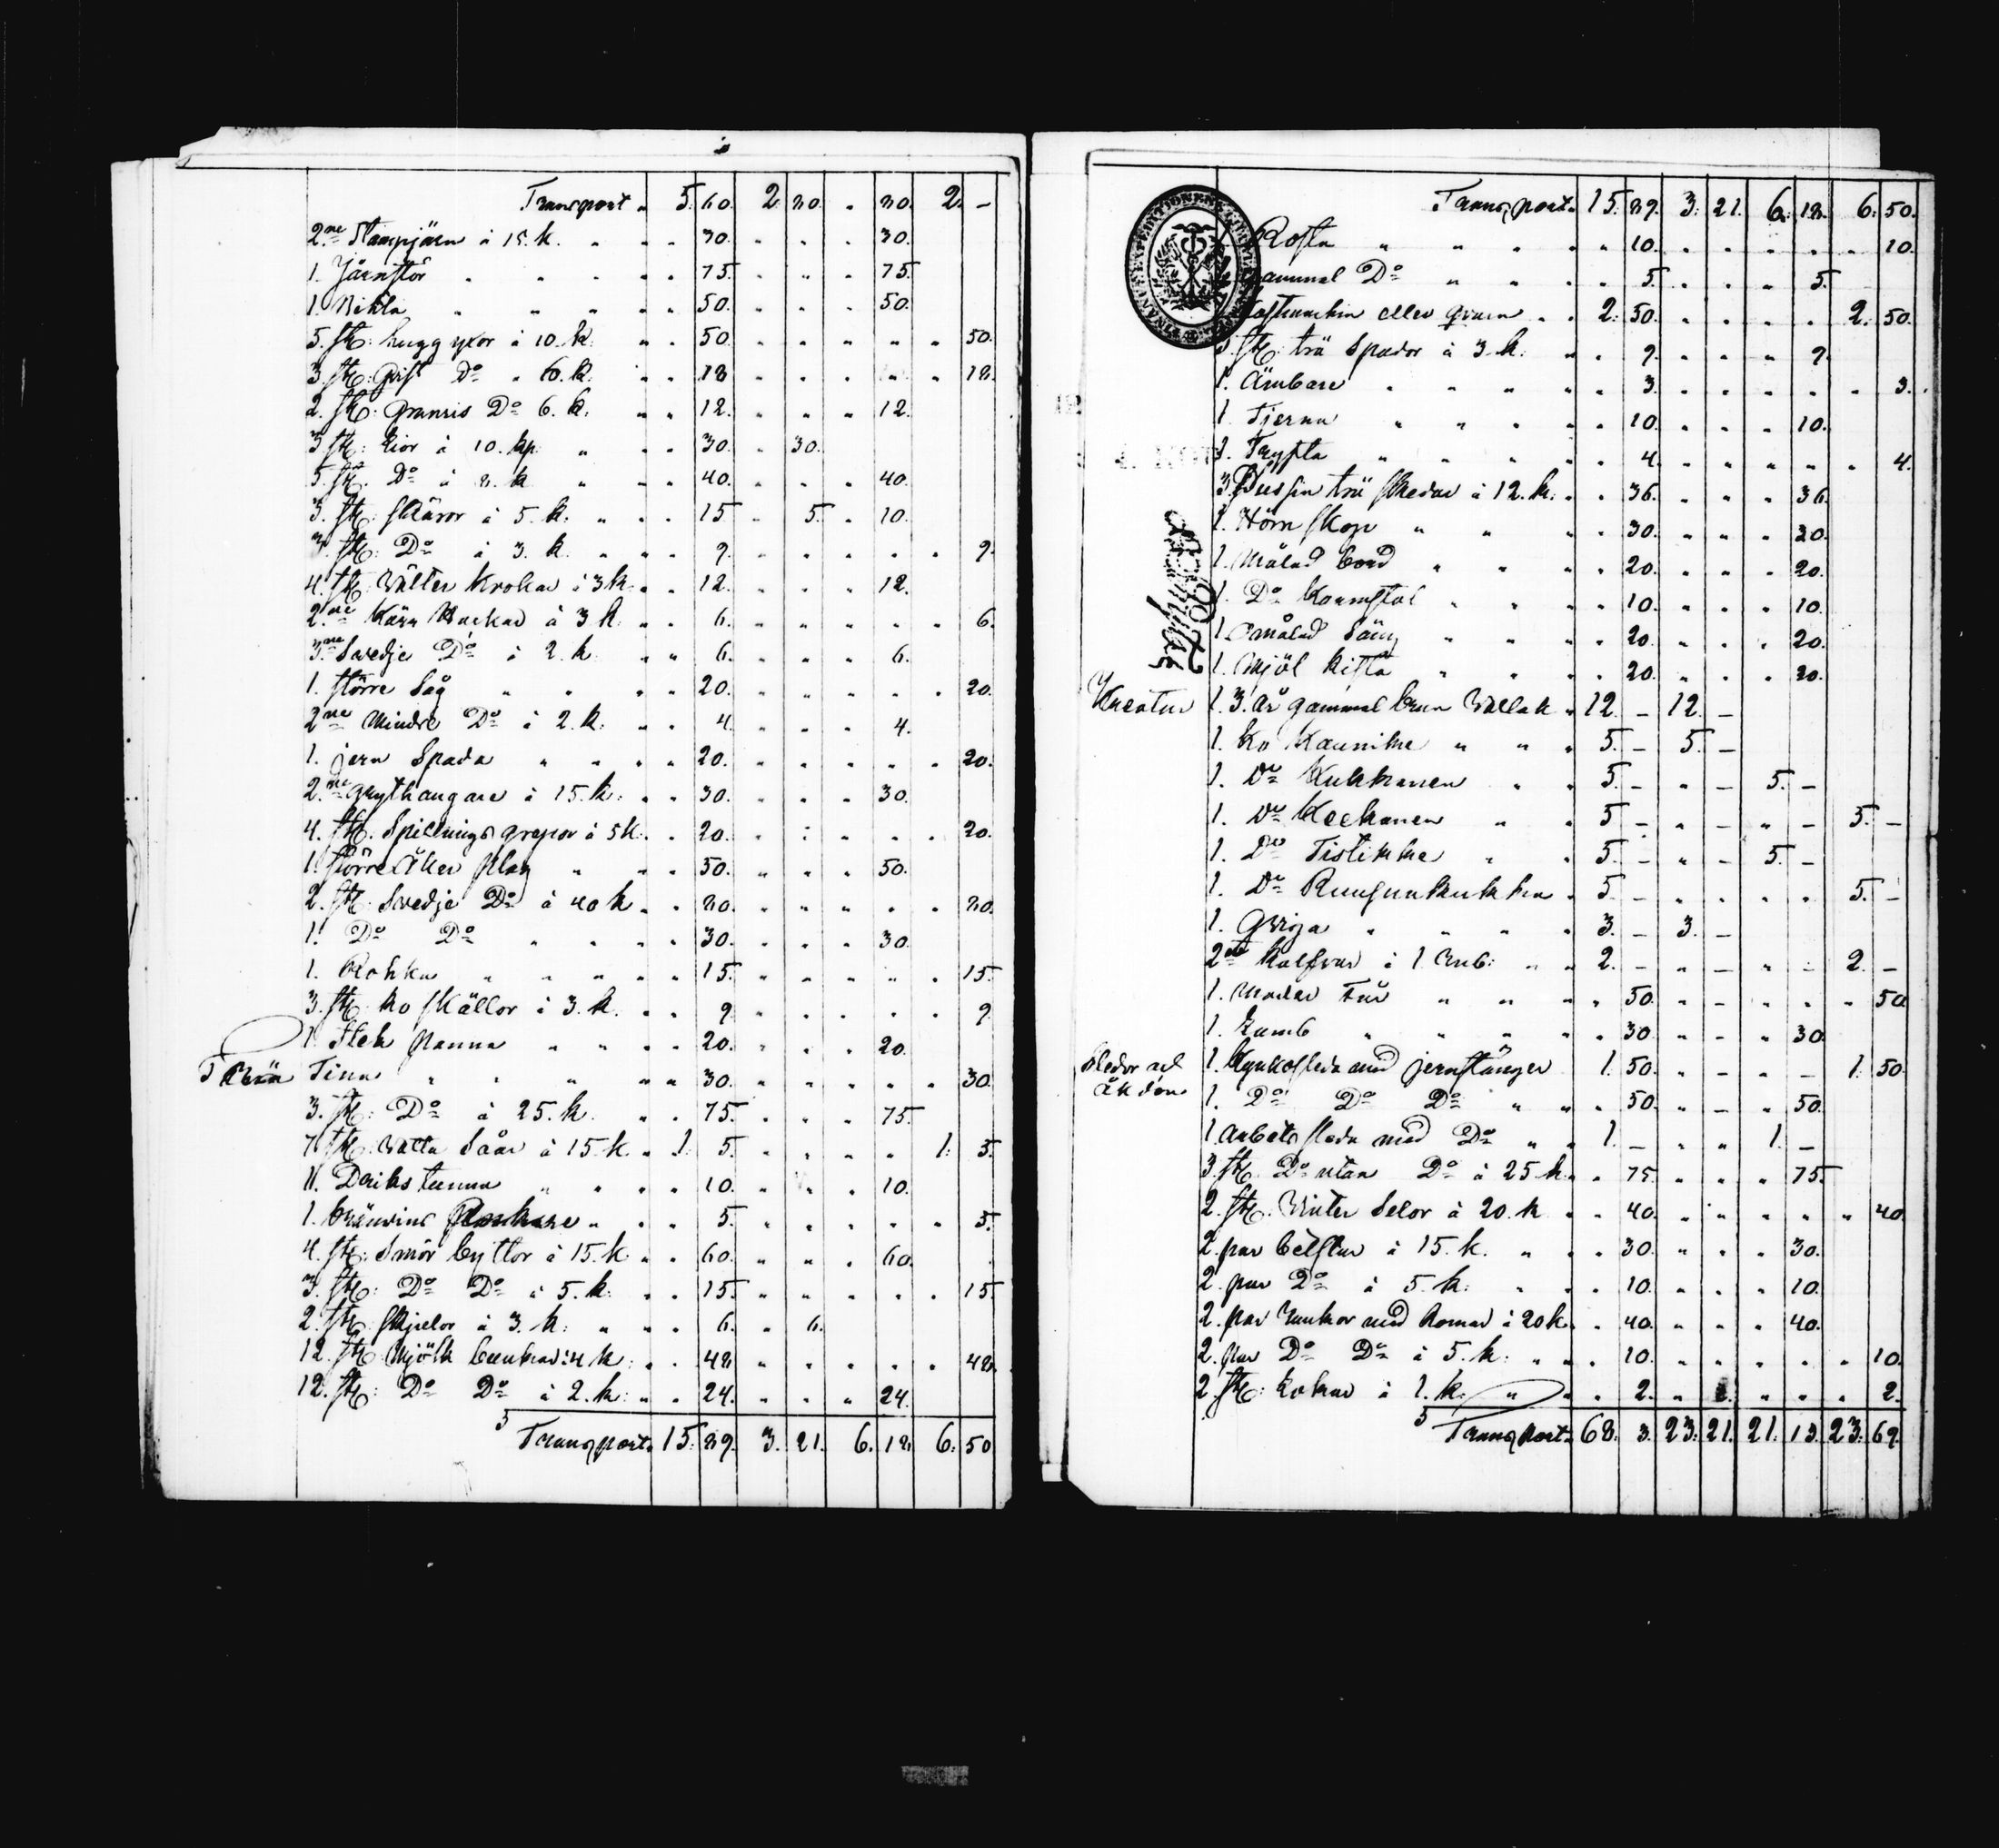 Transport „ 5. 60. 2. 80. „ 80. 2. –
2ne Stampjärn à 15. k. „ „ „ 30. „ „ „ 30.
1. Järnstör „ „ „ „ „ 75. „ „ „ 75.
1. Wikla „ „ „ „ „ 50. „ „ „ 50.
5. st: hugg yxor à 10. k: „ „ 50. „ „ „ „ „ 50.
3. st: Do „ 6. k: „ „ 18 „ „ „ „ „ 18.
2. st: Granris Do 6. k. „ „ 12. „ „ „ 12.
3 st: Lior à 10. kp. „ „ „ 30. „ 30.
5. st. Do à 8. k „ „ „ 40. „ „ „ 40.
3. st: skäror à 5. k: „ „ „ 15 „ 5. „ 10.
3. st: Do à 3. k. „ „ „ 9. „ „ „ „ „ 9.
4. st: Wälter krokar à 3 k „ „ 12. „ „ „ 12.
2.ne Kärr Hackor à 3 k. „ „ 6. „ „ „ „ „ 6.
3.ne Svedje Do à 2. k „ „ 6. „ „ „ 6.
1. större Såg „ „ „ „ 20. „ „ „ „ „ 20.
2ne Mindre Do à 2. k: „ „ 4. „ „ „ 4.
1. jern Spada „ „ „ „ 20. „ „ „ „ „ 20.
2.ne Grythangare à 15. k: „ „ 30. „ „ „ 30.
4. st. Spillnings grepor à 5 k. „ „ 20. „ „ „ „ „ 20.
1. större Åker Plog „ „ „ 50. „ „ „ 50.
2. st: Svedje Do à 40 k „ „ 80. „ „ „ „ „ 80.
1. Do Do „ „ „ „ 30. „ „ „ 30.
1. Rohka „ „ „ „ „ 15. „ „ „ „ „ 15.
3. st: ko skällor à 3. k. „ „ 9. „ „ „ „ „ 9.
1. Stek Panna „ „ „ „ 20. „ „ „ 20.
Träa Tina „ „ „ „ „ 30. „ „ „ „ „ 30.
3. st: Do à 25. k. „ „ 75. „ „ „ 75.
7. st: Vatta Såår à 15. k „ 1. 5. „ „ „ „ 1: 5.
11. Driks tunna „ „ „ „ 10. „ „ „ 10.
1. bränvins Pankare „ „ „ 5. „ „ „ „ „ 5.
4. st: Smör byttor à 15. k „ „ 60. „ „ „ 60.
3. st: Do Do à 5. k: „ „ 15. „ „ „ „ „ 15.
2. st: skjelor à 3. k: „ „ „ 6. „ 6.
12. st: Mjölk bunkar à 4 k: „ „ 48. „ „ „ „ „ 48.
12. st: Do Do à 2. k: „ „ 24. „ „ „ 24.
Transport 15. 89. 3. 21. 6. 18. 6. 50
Transport. 15. 89. 3. 21. 6. 18. 6. 50.
Rosta „ „ „ „ „ 10. „ „ „ „ „ 10.
gammal Do „ „ „ „ 5. „ „ „ 5.
eller qvarn „ „ 2. 50. „ „ „ „ 2. 50.
3. st: trä Spador à 3. k: „ „ 9. „ „ „ 9.
1. Ämbare „ „ „ „ „ 3. „ „ „ „ „ 3.
1. Tjerna „ „ „ „ „ 10. „ „ „ 10.
1. Trysta „ „ „ „ „ 4. „ „ „ „ „ 4.
3. Dussin trä skedar à 12. k: „ „ 36. „ „ „ 36.
1. Hörn skop „ „ „ „ 30. „ „ „ 30.
1. Målad bord „ „ „ „ 20. „ „ „ 20.
1. Do Karmstol „ „ „ „ 10. „ „ „ 10.
1. Omålad Säng „ „ „ „ 20. „ „ „ 20.
1. Mjöl kista „ „ „ „ 20. „ „ „ 20.
Kreatur 1. 3. år gammal brun Wallak „ 12. – 12. –
1. Ko Kaunike „ „ „ 5. – 5. –
1. Do Kukkanen „ „ 5. – „ – 5. –
1. Do Keekanen „ „ 5 – „ – „ – 5. –
1. Do Tistikke „ „ 5. – „ – 5. –
1. Do Ruugunkukka „ 5. – „ „ „ „ 5. –
1. Qviga „ „ „ „ 3. – 3. –
2ne Kalfvar à 1 Rub: „ „ 2. – „ – „ – 2. –
1. Moder Får „ „ „ „ 50. „ – „ „ „ 50
1. Lamb „ „ „ „ „ 30 „ – „ 30
Sledor och Åkdon 1. Kyrkosleda med jernstänger 1. 50. „ – „ – 1. 50.
1. Do Do Do „ „ „ 50. „ – „ 50.
1. Arbets sleda med Do „ „ 1. – „ „ 1. –
3. st: Do utan Do à 25 k. „ „ 75. „ „ „ 75.
2. st: Winter Selor à 20. k „ „ 40. „ „ „ „ „ 40.
2. par betslar à 15. k. „ „ „ 30. „ „ „ 30.
2. par Do à 5. k: „ „ 10. „ „ „ 10.
2. par Rankor med Romar à 20 k. „ „ 40. „ „ „ 40.
2. par Do Do à 5. k: „ „ „ 10. „ „ „ „ „ 10.
2. st: Lokar à 1. k: „ „ „ 2. „ „ „ „ „ 2.
Transport. 68. 3. 23. 21. 21. 13. 23. 69.